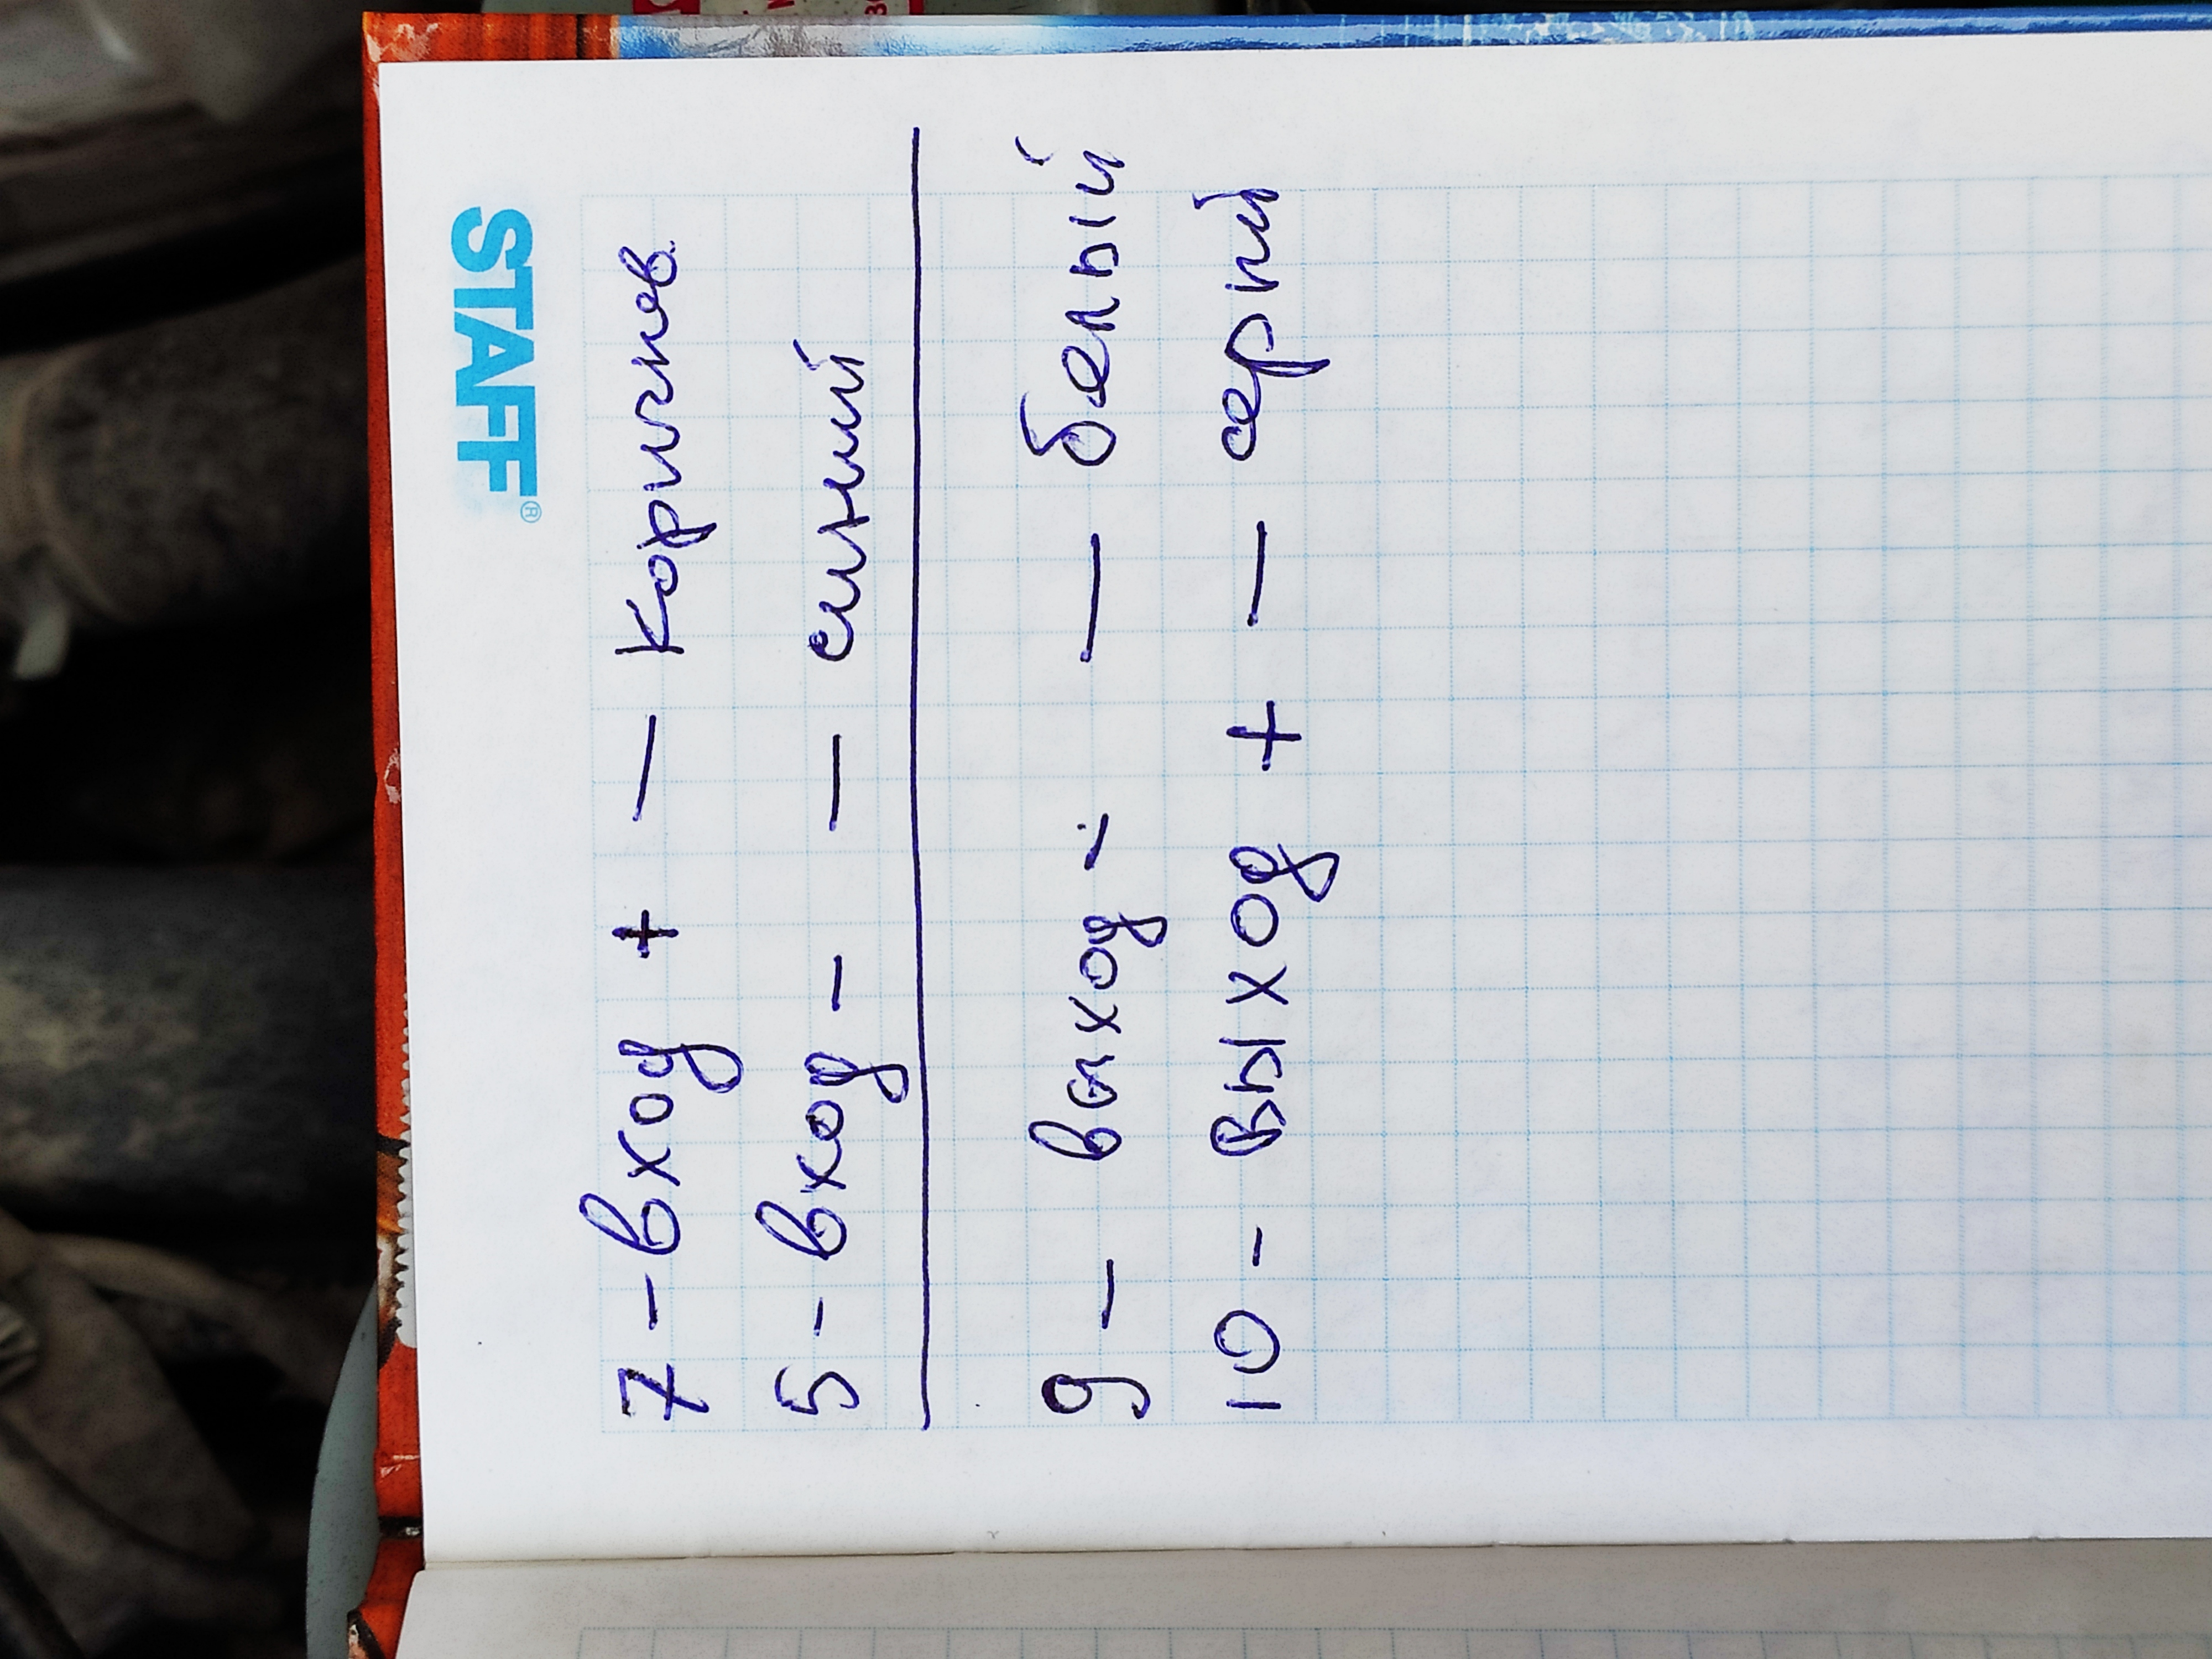 STAFF®
7 - вход + — коричнев.
5 - вход - — синий
9 - выход - — белый
10 - выход + — серый